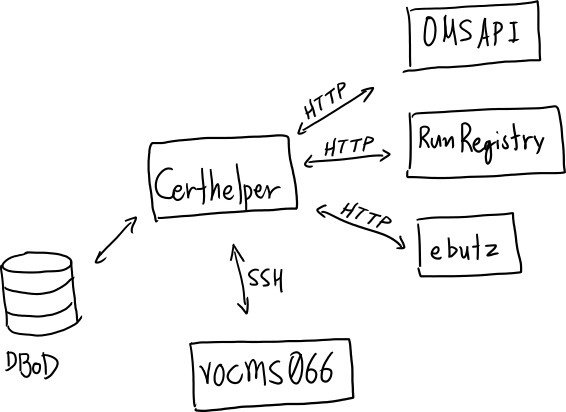 OMSAPI
HTTP
RunRegistry
HTTP
Certhelper
HTTP
ebutz
SSH
DBoD
vocms066